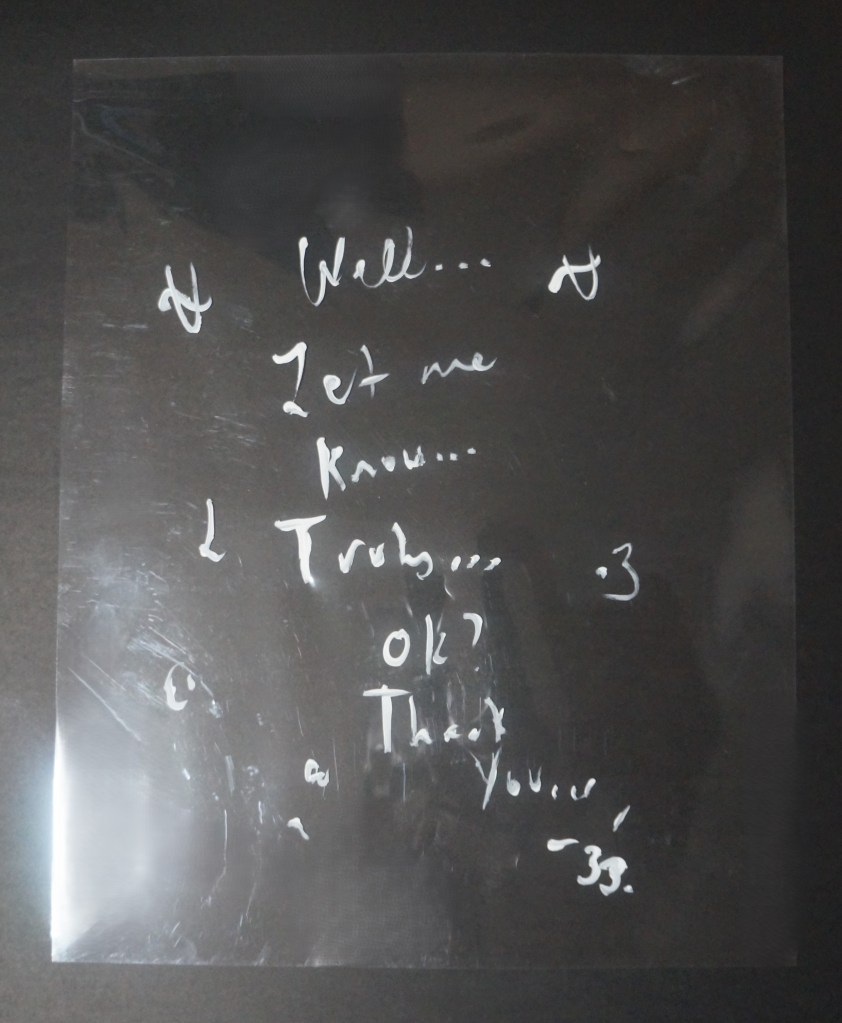 Well...
Let me
Know...
Truly...
OK?
Thank
You...